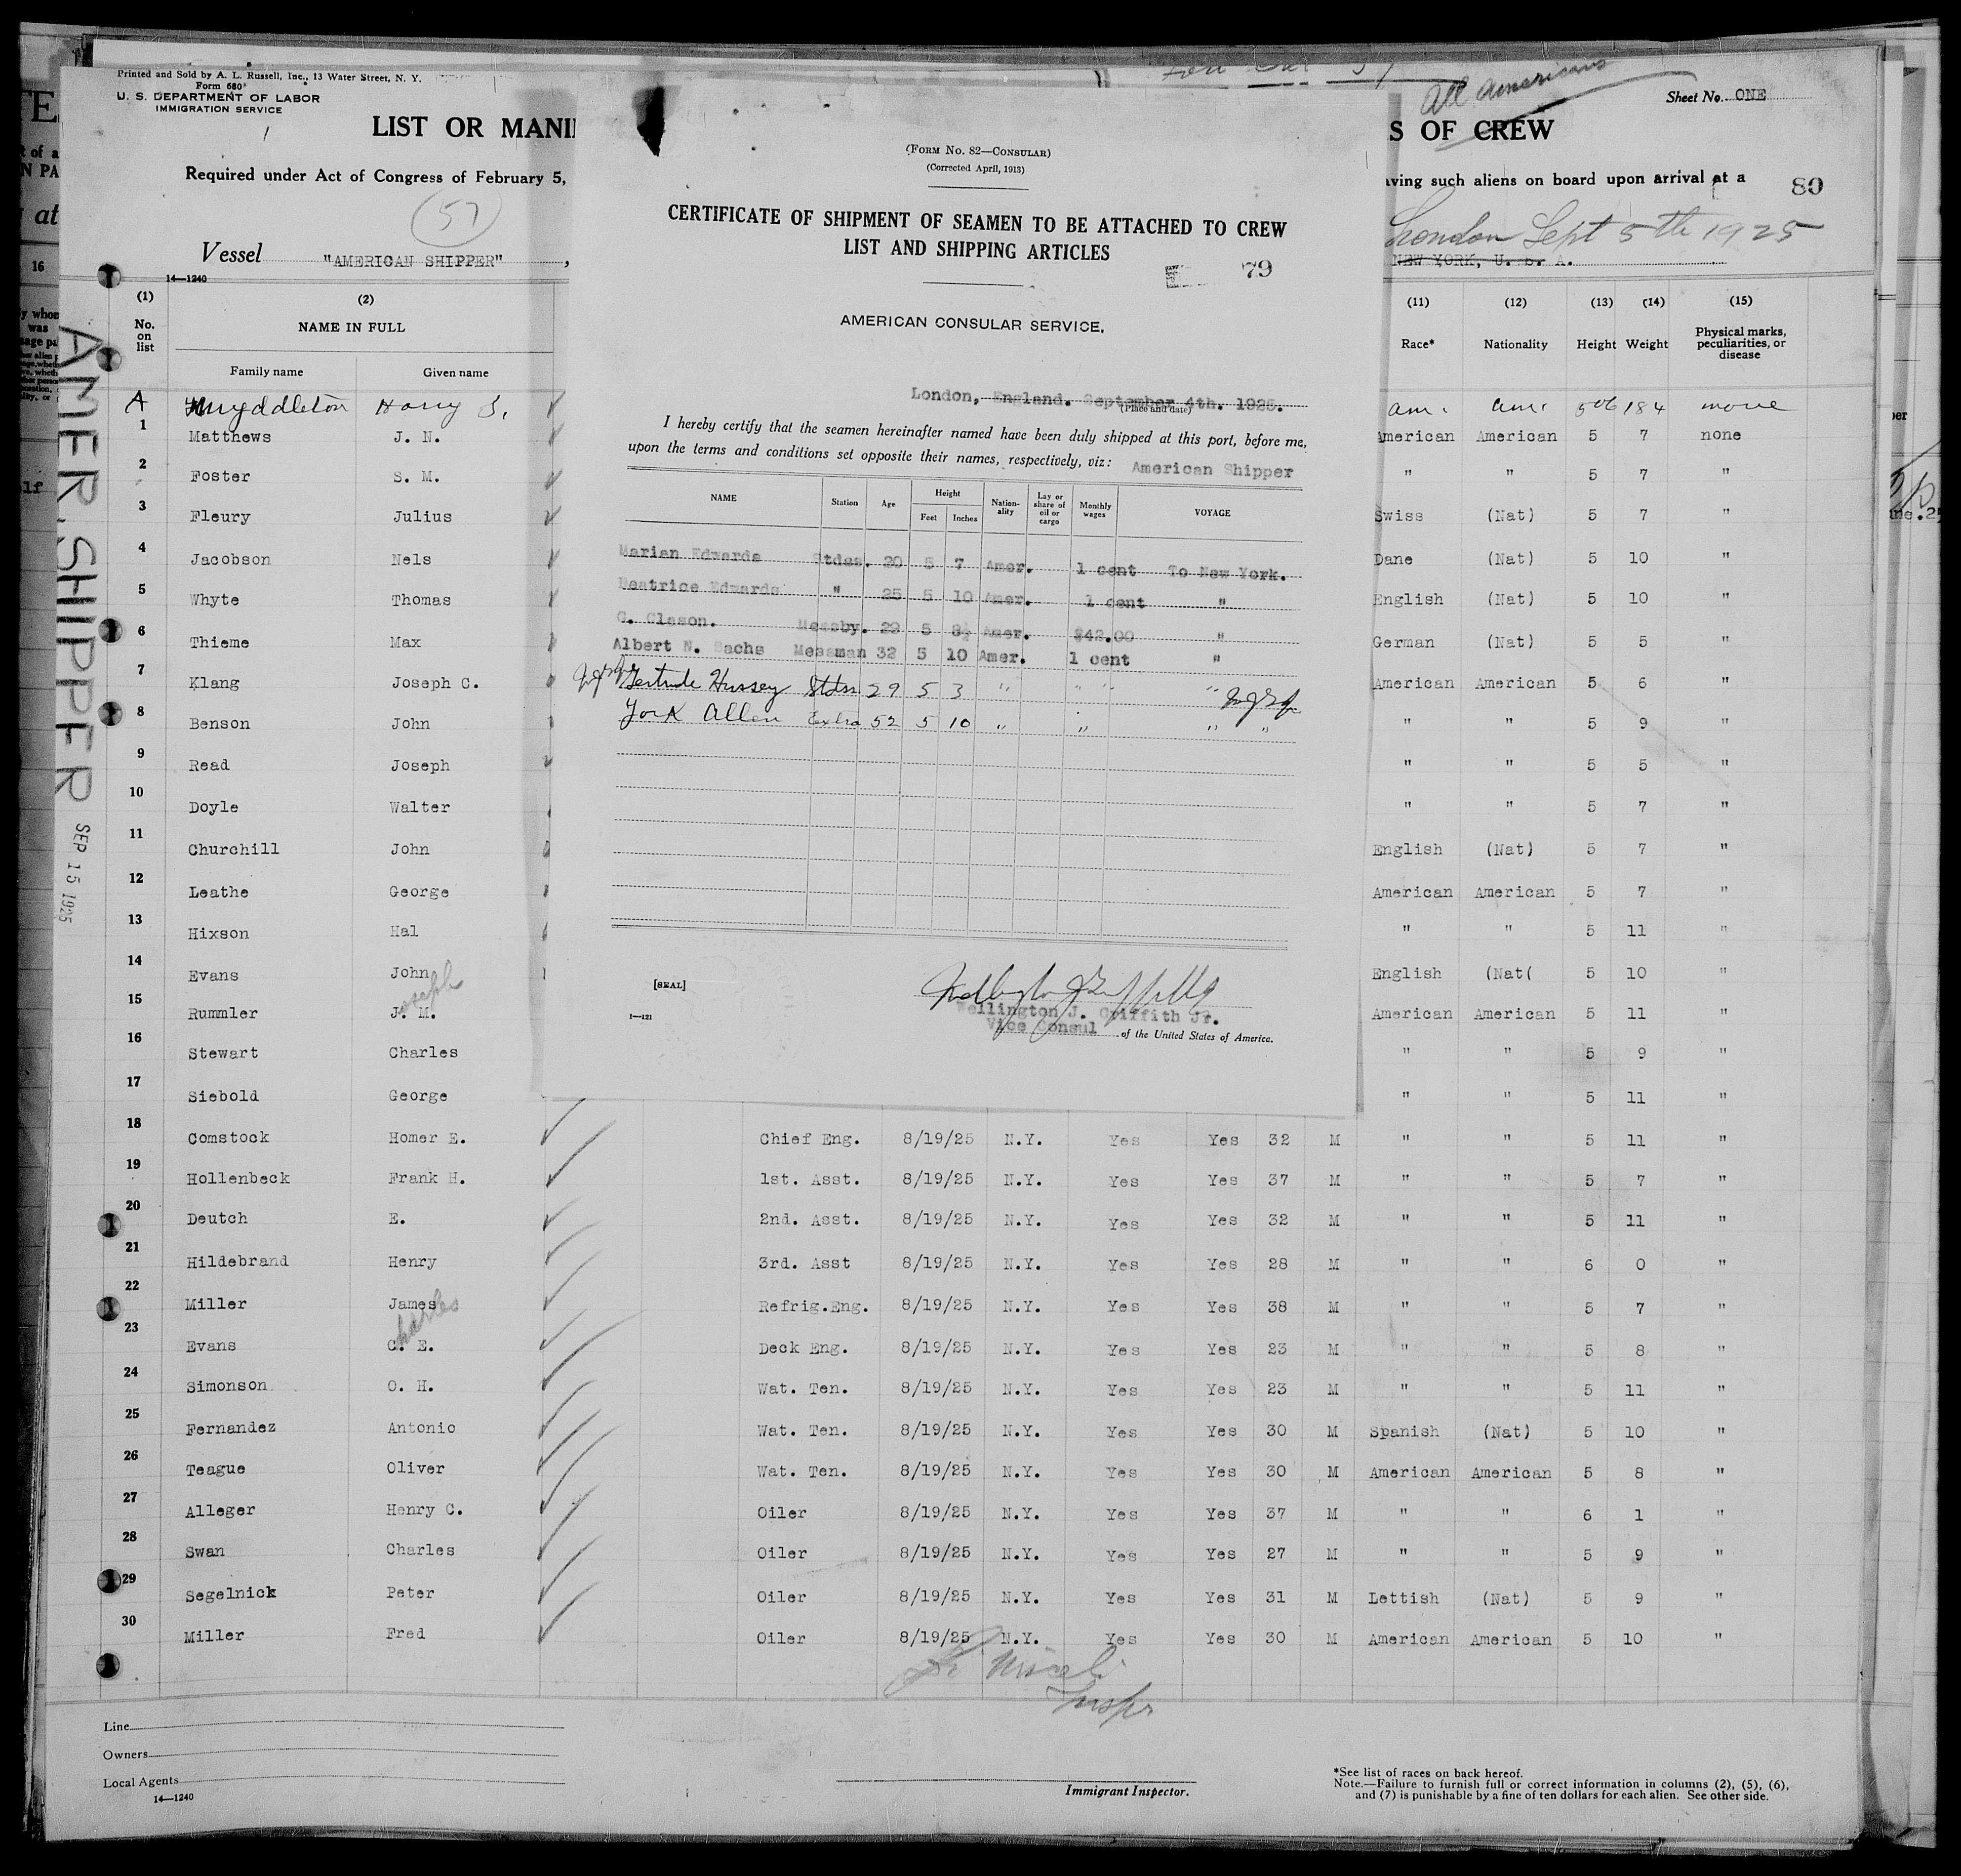 Printed and Sold by A. L. Russell, Inc., 13 Water Street, N. Y.
Form 680
U. S. DEPARTMENT OF LABOR
IMMIGRATION SERVICE
All Americans
Sheet No. ONE
LIST OR MANI
S OF CREW
Required under Act of Congress of February 5,
aving such aliens on board upon arrival at a
80
57
London Sept 5th 1925
Vessel "AMERICAN SHIPPER",
NEW YORK, U. S. A.
14—1240
(1) (2) (11) (12) (13) (14) (15)
No. on list NAME IN FULL Race* Nationality Height Weight Physical marks, peculiarities, or disease
Family name Given name
A Myddleton Harry S. am. am. 5 06 184 none
1 Matthews J. N. American American 5 7 none
2 Foster S. M. " " 5 7 "
3 Fleury Julius Swiss (Nat) 5 7 "
4 Jacobson Nels Dane (Nat) 5 10 "
5 Whyte Thomas English (Nat) 5 10 "
6 Thieme Max German (Nat) 5 5 "
7 Klang Joseph C. American American 5 6 "
8 Benson John " " 5 9 "
9 Read Joseph " " 5 5 "
10 Doyle Walter " " 5 7 "
11 Churchill John English (Nat) 5 7 "
12 Leathe George American American 5 7 "
13 Hixson Hal " " 5 11 "
14 Evans John English (Nat( 5 10 "
Joseph
15 Rummler J. M. American American 5 11 "
16 Stewart Charles " " 5 9 "
17 Siebold George " " 5 11 "
18 Comstock Homer E. Chief Eng. 8/19/25 N.Y. Yes Yes 32 M " " 5 11 "
19 Hollenbeck Frank H. 1st. Asst. 8/19/25 N.Y. Yes Yes 37 M " " 5 7 "
20 Deutch E. 2nd. Asst. 8/19/25 N.Y. Yes Yes 32 M " " 5 11 "
21 Hildebrand Henry 3rd. Asst 8/19/25 N.Y. Yes Yes 28 M " " 6 0 "
22 Miller James Refrig.Eng. 8/19/25 N.Y. Yes Yes 38 M " " 5 7 "
Charles
23 Evans C. E. Deck Eng. 8/19/25 N.Y. Yes Yes 23 M " " 5 8 "
24 Simonson O. H. Wat. Ten. 8/19/25 N.Y. Yes Yes 23 M " " 5 11 "
25 Fernandez Antonio Wat. Ten. 8/19/25 N.Y. Yes Yes 30 M Spanish (Nat) 5 10 "
26 Teague Oliver Wat. Ten. 8/19/25 N.Y. Yes Yes 30 M American American 5 8 "
27 Alleger Henry C. Oiler 8/19/25 N.Y. Yes Yes 37 M " " 6 1 "
28 Swan Charles Oiler 8/19/25 N.Y. Yes Yes 27 M " " 5 9 "
29 Segelnick Peter Oiler 8/19/25 N.Y. Yes Yes 31 M Lettish (Nat) 5 9 "
30 Miller Fred Oiler 8/19/25 N.Y. Yes Yes 30 M American American 5 10 "
Inspr
Line
Owners
Local Agents
14—1240
Immigrant Inspector.
*See list of races on back hereof.
Note.—Failure to furnish full or correct information in columns (2), (5), (6),
and (7) is punishable by a fine of ten dollars for each alien. See other side.
AMER. SHIPPER
SEP 15 1925
(FORM NO. 82—CONSULAR)
(Corrected April, 1913)
CERTIFICATE OF SHIPMENT OF SEAMEN TO BE ATTACHED TO CREW
LIST AND SHIPPING ARTICLES
79
AMERICAN CONSULAR SERVICE,
London, England. September 4th. 1925.
(Place and date)
I hereby certify that the seamen hereinafter named have been duly shipped at this port, before me,
upon the terms and conditions set opposite their names, respectively, viz: American Shipper
NAME Station Age Height Feet Inches Nationality Lay or share of oil or cargo Monthly wages VOYAGE
Marian Edwards Stdss. 20 5 7 Amer. 1 cent To New York.
Beatrice Edwards " 25 5 10 Amer. 1 cent "
G. Clason. Messby. 29 5 8½ Amer. $42.00 "
Albert N. Sachs Messman 32 5 10 Amer. 1 cent "
Gertrude Hussey Stdss 29 5 3 " " " "
York Allen Extra 52 5 10 " " " "
[SEAL]
1—121
Wellington J. Griffith Jr.
Vice Consul of the United States of America.